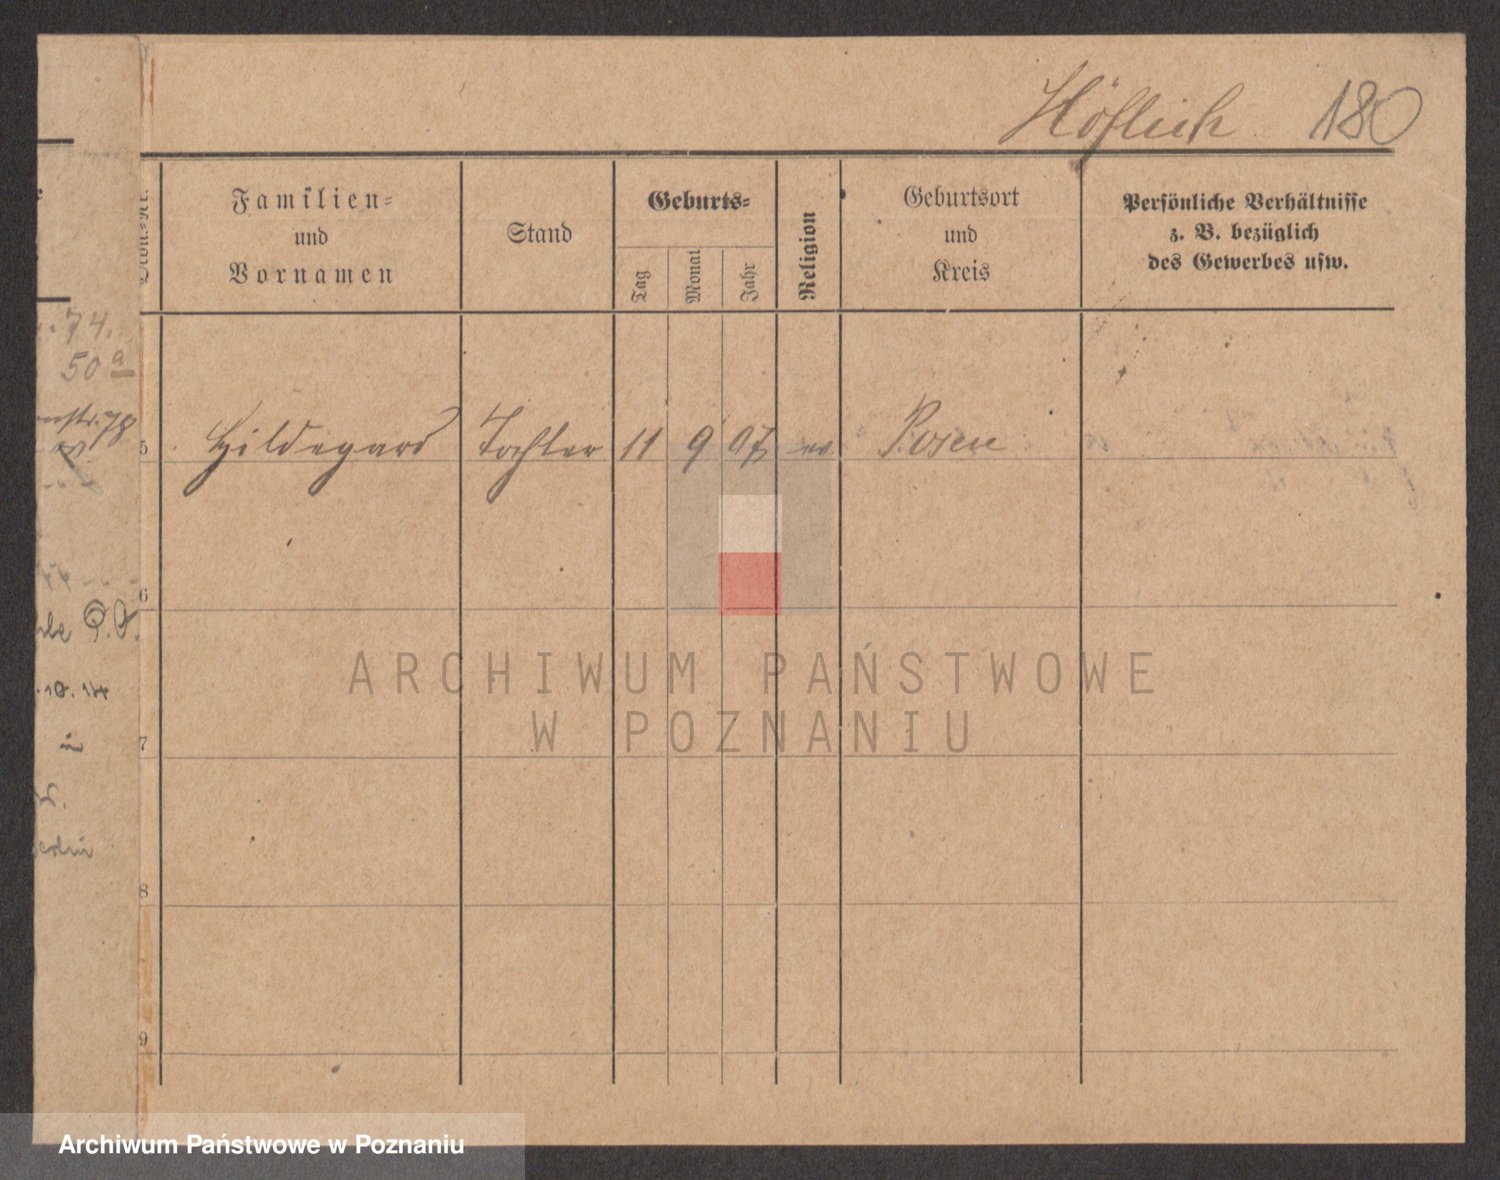 Höflich 180
Familien-
und
Vornamen
Stand
Geburts-
Tag
Monat
Jahr
Religion
Geburtsort
und
Kreis
Persönliche Verhältnisse
z. B. bezüglich
des Gewerbes usw.
74.
50 a
78
5 Hildegard Tochter 11 9 07 ev Posen
6
10. 14
in
7
8
9
ARCHIWUM PAŃSTWOWE
W POZNANIU
Archiwum Państwowe w Poznaniu